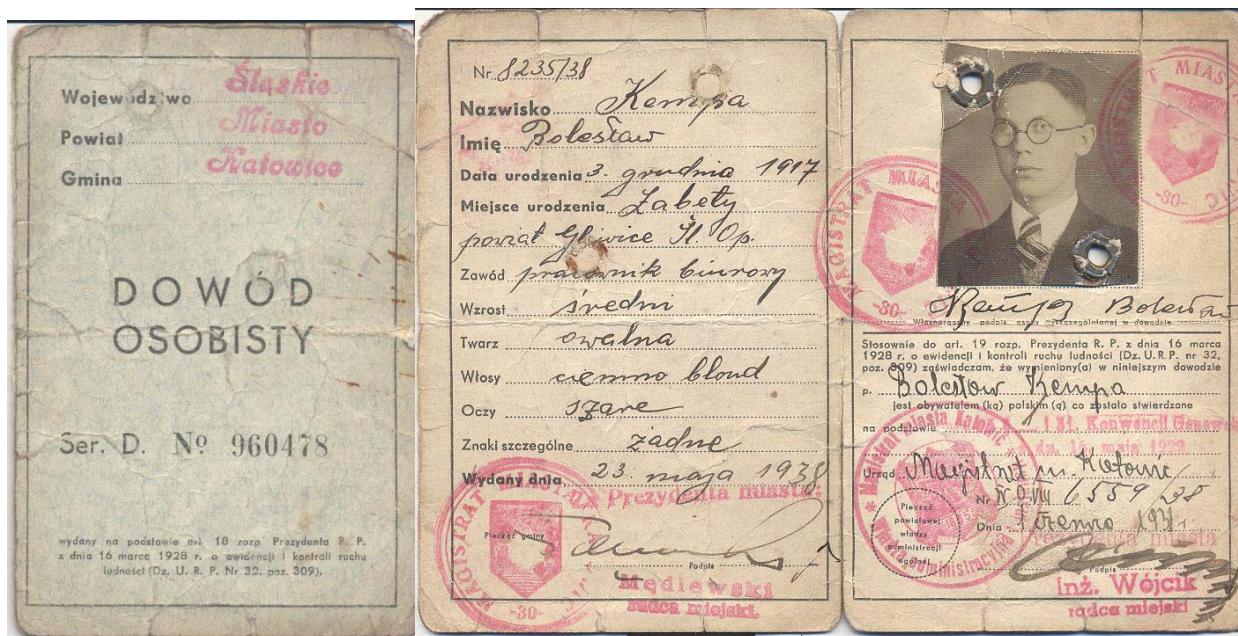 Województwo Śląskie
Powiat Miasto
Gmina Katowice
DOWÓD
OSOBISTY
Ser. D. № 960478
wydany na podstawie art. 18 rozp. Prezydenta R. P.
z dnia 16 marca 1928 r. o ewidencji i kontroli ruchu
ludności (Dz. U. R. P. Nr 32, poz. 309).
Nr. 8235/38
Nazwisko Kempa
Imię Bolesław
Data urodzenia 3. grudnia 1917
Miejsce urodzenia Łabęty
powiat Gliwice Śl. Op.
Zawód pracownik biurowy
Wzrost średni
Twarz owalna
Włosy ciemno blond
Oczy szare
Znaki szczególne żadne
Wydany dnia 23. maja 1938
Prezydenta miasta:
MAGISTRAT MIASTA
Pieczęć gminy
-30-
Podpis
Mędlewski
radca miejski.
MAGISTRAT MIASTA
-30-
MAGISTRAT MIASTA
-30-
Kempa Bolesław
Własnoręczny podpis osoby wyszczególnionej w dowodzie
Stosownie do art. 19 rozp. Prezydenta R. P. z dnia 16 marca
1928 r. o ewidencji i kontroli ruchu ludności (Dz. U. R. P. nr 32,
poz. 309) zaświadczam, że wymieniony(a) w niniejszym dowodzie
p. Bolesław Kempa
jest obywatelem (ką) polskim (ą) co zostało stwierdzone
na podstawie Konwencji Genewsk
dn. 15. maja 1922.
Urząd Magistrat m. Katowic
Nr 6559/38
Dnia 1 czerwca
Prezydenta miasta
Magistrat Miasta Katowic
Władza Administracyjna
Pieczęć
powiatowej
władzy
administracji
ogólnej
Podpis
Inż. Wójcik
radca miejski